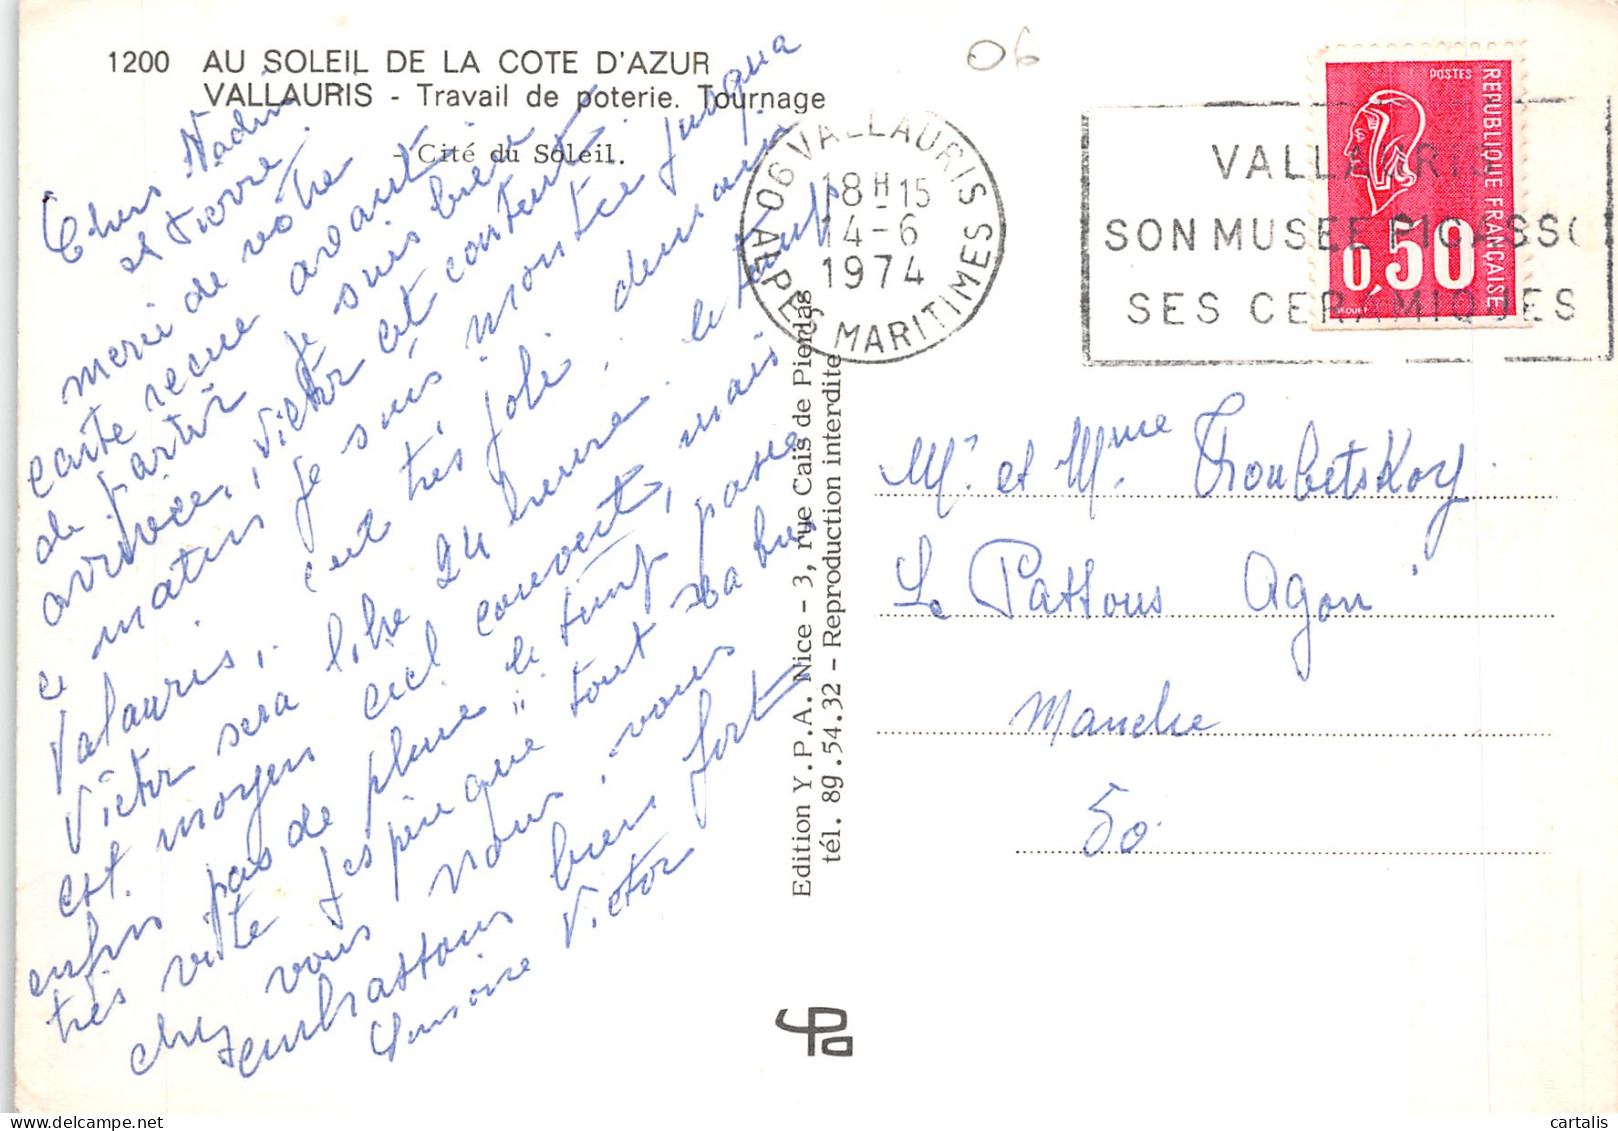 1200 AU SOLEIL DE LA COTE D'AZUR
VALLAURIS - Travail de poterie. Tournage
- Cité du Soleil.
06
Chers Nadine
et Pierre
merci de votre
carte recue avant
de partir je suis bien
arrivée, Victor est content
ce matin je suis monter jusqua
Valauris, c'est très joli, demain
Victor sera libre 24 heure. le temps
est moyen ciel couvert, mais
enfin pas de pluie ". le temp passe
très vite J'espère que tout va bien
chez vous nous, vous
embrassons bien fort
Victor
06 VALLAURIS
18H15
14-6
1974
ALPES MARITIMES
VALLAURIS
SON MUSEE PICASSO
SES CERAMIQUES
POSTES
REPUBLIQUE FRANÇAISE
0,50
BEQUET
Mr. et Mme. Troubetskoy.
Le Pattous Agon
Manche
50.
Edition Y.P.A. Nice - 3, rue Cais de Pierlas
tél. 89.54.32 - Reproduction interdite
cartalis
delcampe.net